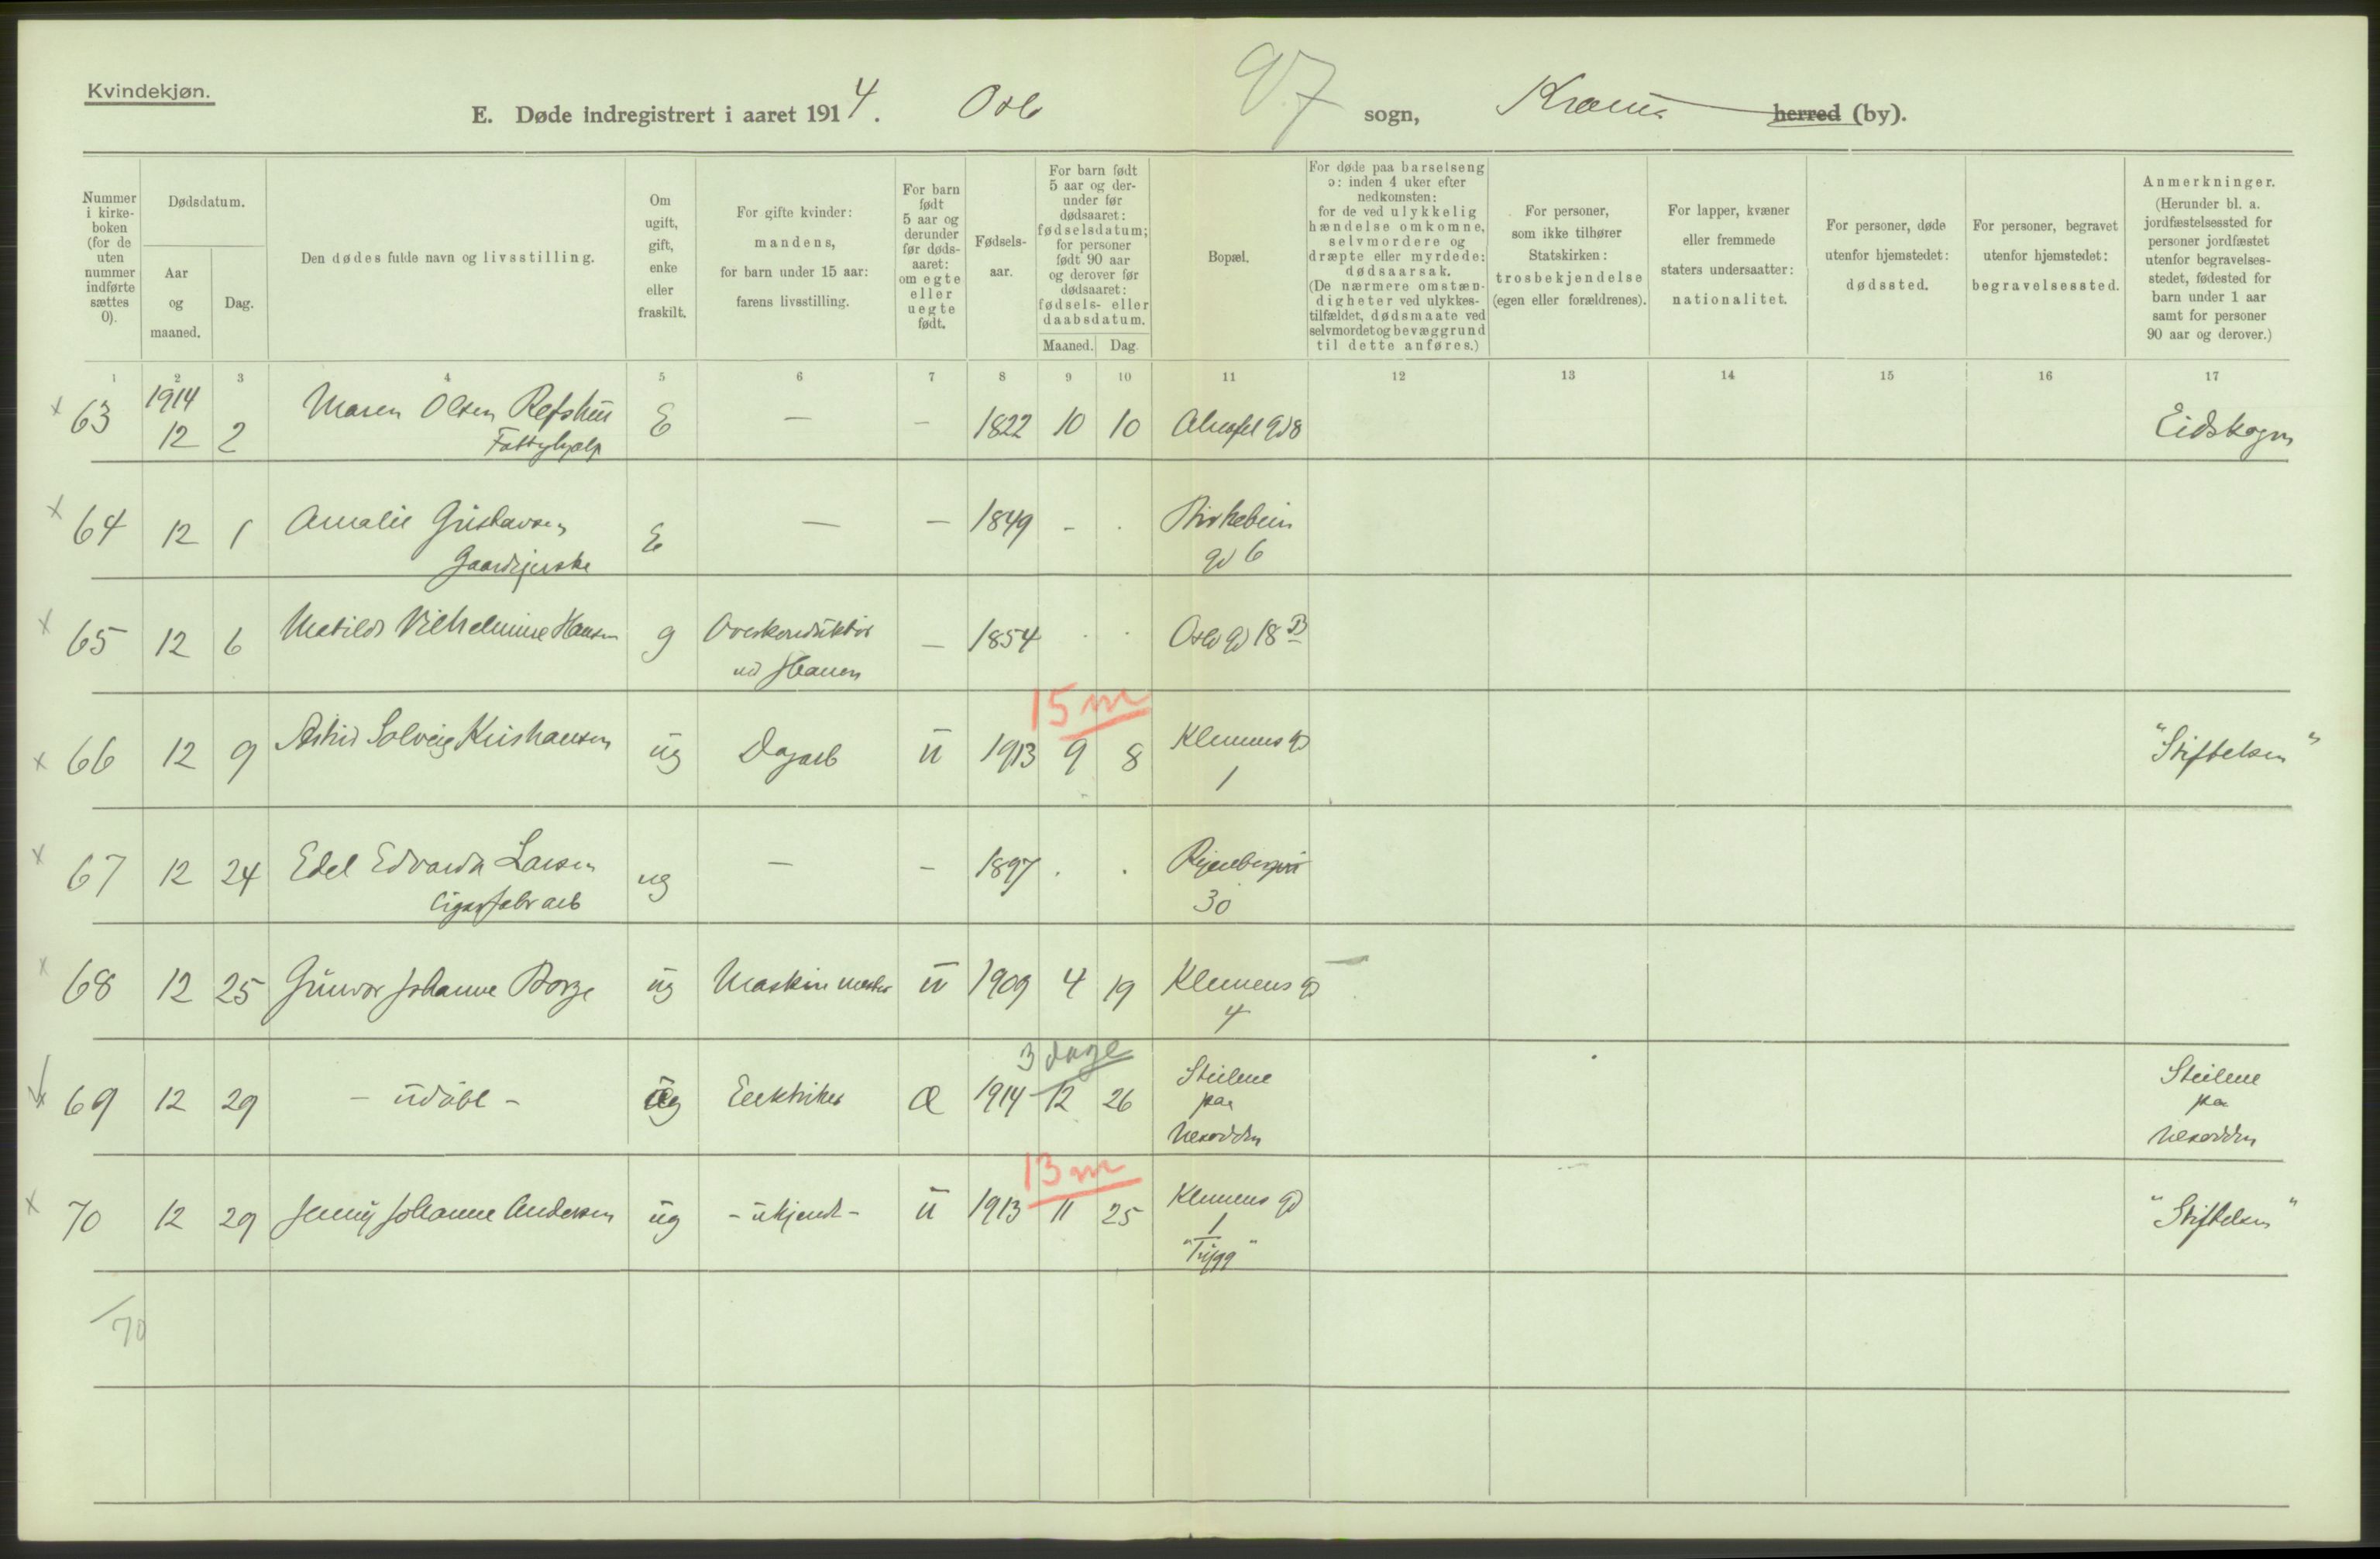 Kvindekjøn.
97
E. Døde indregistrert i aaret 1914. Oslo sogn, Krania herred (by).
Nummer i kirkeboken (for de uten nummer indførte sættes 0).
Dødsdatum.
Aar og maaned.
Dag.
Den dødes fulde navn og livsstilling.
Om ugift, gift, enke eller fraskilt.
For gifte kvinder: mandens, for barn under 15 aar: farens livsstilling.
For barn født 5 aar og derunder før dødsaaret: om egte eller uegte født.
Fødselsaar.
For barn født 5 aar og derunder før dødsaaret: fødselsdatum; for personer født 90 aar og derover før dødsaaret: fødsels- eller daabsdatum.
Maaned. Dag.
Bopæl.
For døde paa barselseng ɔ: inden 4 uker efter nedkomsten: for de ved ulykkelig hændelse omkomne, selvmordere og dræpte eller myrdede: dødsaarsak. (De nærmere omstændigheter ved ulykkestilfældet, dødsmaate ved selvmordet og bevæggrund til dette anføres.)
For personer, som ikke tilhører Statskirken: trosbekjendelse (egen eller forældrenes).
For lapper, kvæner eller fremmede staters undersaatter: nationalitet.
For personer, døde utenfor hjemstedet: dødssted.
For personer, begravet utenfor hjemstedet: begravelsessted.
Anmerkninger. (Herunder bl. a. jordfæstelsessted for personer jordfæstet utenfor begravelsesstedet, fødested for barn under 1 aar samt for personer 90 aar og derover.)
1 2 3 4 5 6 7 8 9 10 11 12 13 14 15 16 17
1914
x 63 12 2 Maren Olsen Refshus E — — 1822 10 10 gd 8 Eidskogn
Fattighjælp
x 64 12 1 Amalie Gustavsen E — — 1849 - . Birkebein
Gaardejerske gd 6
x 65 12 6 Matilde Vilhelmine Hansen g Overkonduktør — 1854 . . Oslo gd 18 B
15 m
x 66 12 9 Astrid Solveig Kristiansen ug Dagarb u 1913 9 8 Klemens gd "Stiftelsen"
1
x 67 12 24 Edel Edvarda Larsen ug — — 1897 . .
Cigarfabr arb 30
x 68 12 25 Gunvor Johanne Borge ug Maskinmester u 1909 4 19 Klemens gd
4
3 dage
x 69 12 29 – udøbt – ug Elektriker Æ 1914 12 26 Steilene Steilene
paa paa
Nesodden Nesodden
13 m
x 70 12 29 Jenny Johanne Andersen ug – ukjendt – u 1913 11 25 Klemens gd "Stiftelsen"
1
"Trygg"
70